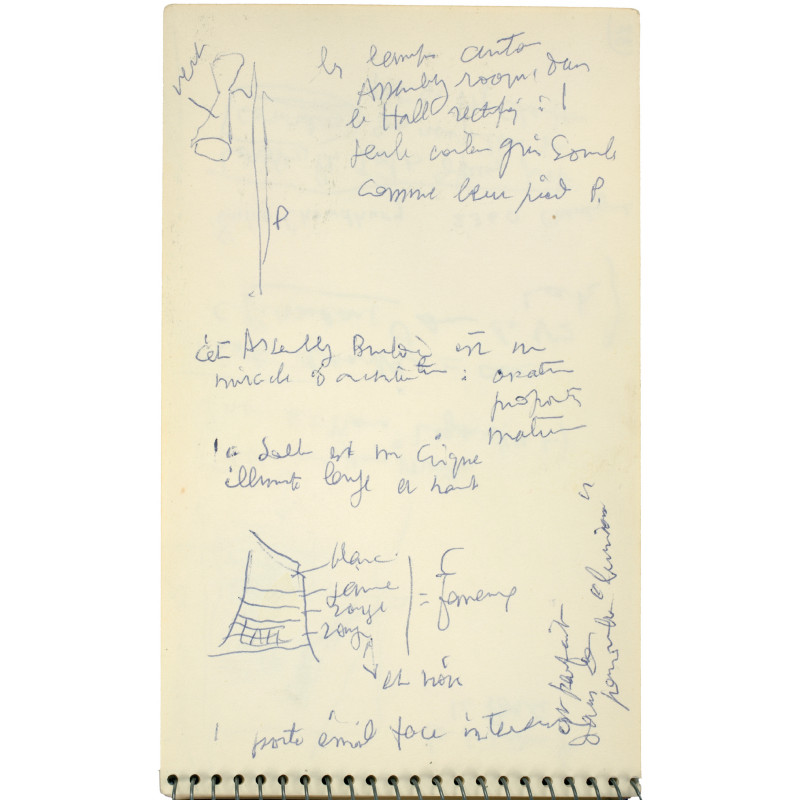 vert
les lamp
Assembly rooms, dans
le Hall rectifier : !
seule couleur gris sombre
comme leur pied P.
P
cet Assembly Build est un
miracle d'architecture :
proports
matière
la salle est un Cirque
illimité large et haut
blanc
jaune
rouge
rouge
= fameux
et noir
! porte émail face intérieure
est parfait
dans la
pénombre